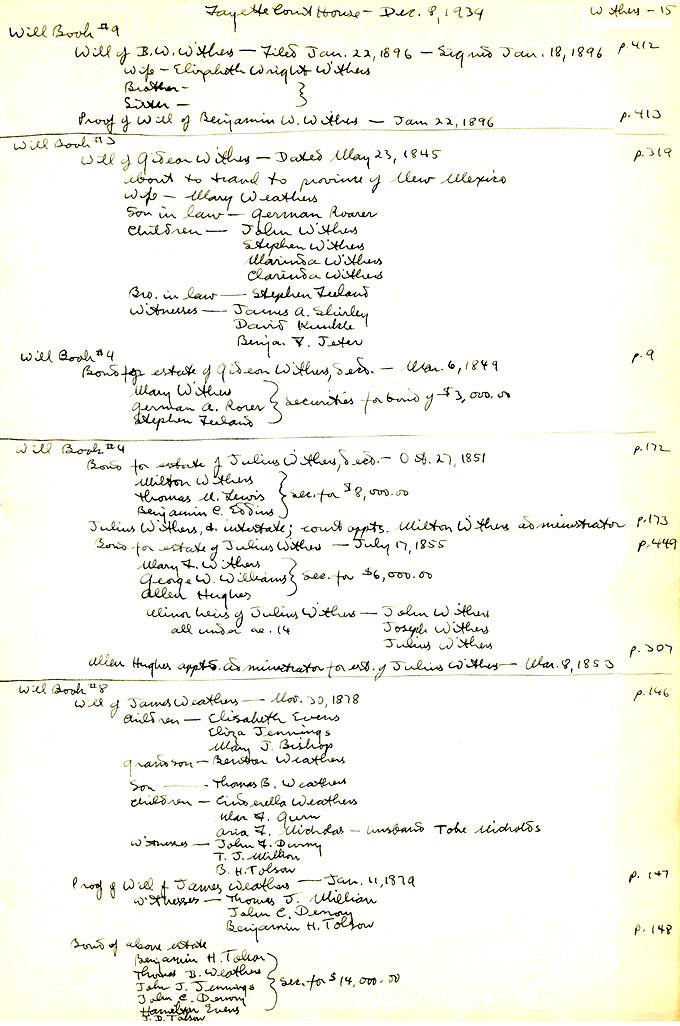 Fayette Court House - Dec. 8, 1934 Withers - 15
Will Book #9
Will of B.W. Withers - Filed Jan. 22, 1896 - Signed Jan. 18, 1896 p. 412
Wife - Elizabeth Wright Withers
Brother -
Sister -
Proof of Will of Benjamin W. Withers - Jan 22, 1896 p. 413
Will Book #3
Will of Gideon Withers - Dated May 23, 1845 p. 319
about to travel to province of New Mexico
Wife - Mary Weathers
Son in law - German Roarer
Children - John Withers
Stephen Withers
Marinda Withers
Clarinda Withers
Bro. in law - Stephen Zeeland
Witnesses - James A. Shirley
David Kunkle
Benja. F. Jeter
Will Book #4 p. 9
Bond for estate of Gideon Withers, decd. - Mar. 6, 1849
Mary Withers
German A. Rorer } securities for bond of $3,000.00
Stephen Zeeland
Will Book #4 p. 172
Bond for estate of Julius Withers, decd. - Oct. 27, 1851
Milton Withers
Thomas M. Lewis } sec. for $8,000.00
Benjamin C. Eddins
Julius Withers, d. intestate; court appts. Milton Withers administrator p. 173
Bond for estate of Julius Withers - July 17, 1855 p. 449
Mary F. Withers
George W. Williams } sec. for $6,000.00
Allen Hughes
Minor heirs of Julius Withers - John Withers
all under ae. 14 Joseph Withers
Julius Withers
Allen Hughes appts. administrator for est. of Julius Withers - Mar. 8, 1853 p. 307
Will Book #8
Will of James Weathers - Nov. 30, 1878 p. 146
Children - Elizabeth Evens
Eliza Jennings
Mary J. Bishop
Grandson - Weathers
Son - Thomas B. Weathers
Children - Cinderella Weathers
Mar F. Gunn
Aria F. Nicholas - husband Tobe Nicholds
Witnesses - John F. Denny
T. J. Million
B. H. Tolson
Proof of Will of James Weathers - Jan. 11, 1879 p. 147
Witnesses - Thomas J. Millian
John C. Denny
Benjamin H. Tolson p. 148
Bond of above estate
Benjamin H. Tolson
Thomas B. Weathers
John J. Jennings } sec. for $14,000.00
John C. Denny
Hamelton Evens
J. D. Tolson